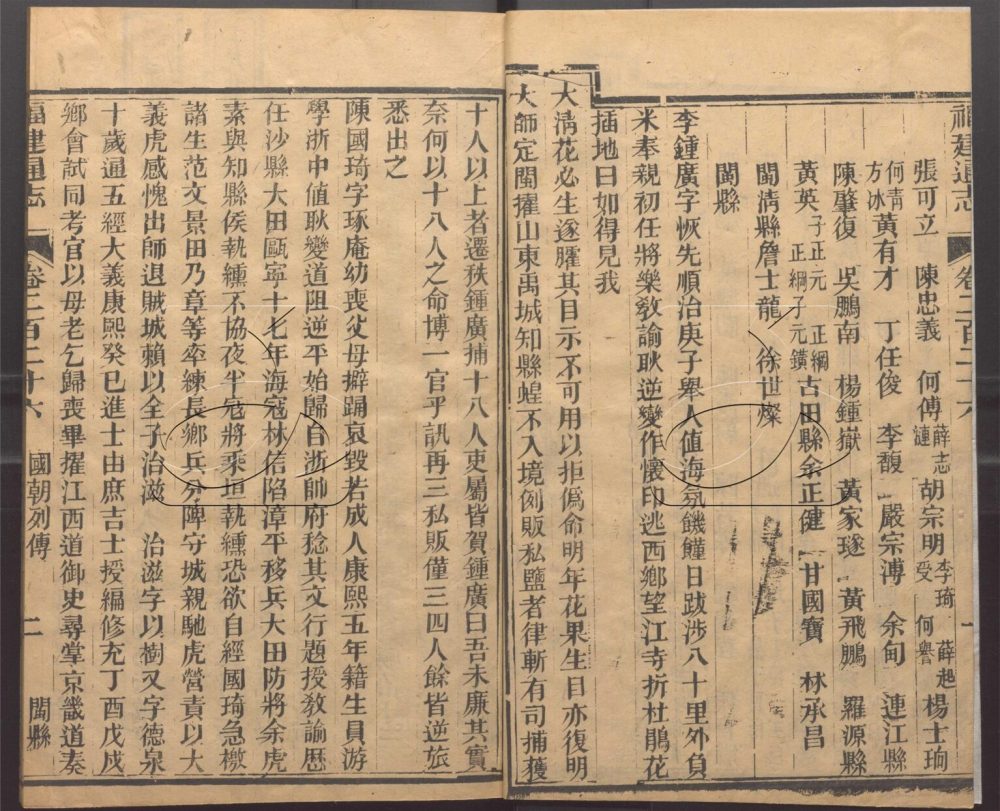 福建通志 卷二百二十六 一
張可立 陳忠義 何傅 薛志漣 胡宗明 李琦受 何譽 薛起 楊士珣
何青方冰 黃有才 丁任俊 李馥 嚴宗溥 余甸 連江縣
陳肇復 吳鵬南 楊鍾嶽 黃家璲 黃飛鵬 羅源縣
黃英 子正元 正綱 正綱子元鑌 古田縣余正健 甘國寶 林承昌
閩清縣詹士龍 徐世燦
閩縣
李鍾廣字恢先順治庚子舉人值海氛饑饉日跋涉八十里外負
米奉親初任將樂敎諭耿逆變作懷印逃西鄉望江寺折杜鵑花
插地曰如得見我
大淸花必生逐臞其目示不可用以拒僞命明年花果生目亦復明
大師定閩擢山東禹城知縣蝗不入境例販私鹽者律斬有司捕獲
十人以上者遷秩鍾廣捕十八人吏屬皆賀鍾廣曰吾未廉其實
奈何以十八人之命博一官乎訊再三私販僅三四人餘皆逆旅
悉出之
陳國琦字琢庵幼喪父母擗踊哀毀若成人康熙五年籍生員游
學浙中值耿變道阻逆平始歸自浙帥府稔其文行題授敎諭歴
任沙縣大田甌寧十七年海寇林信陷漳平移兵大田防將余虎
素與知縣侯執纁不協夜半寇將乘垣執纁恐欲自經國琦急檄
諸生范文景田乃章等率練長鄉兵分陴守城親馳虎營責以大
義虎感愧出師退賊城賴以全子治滋 治滋字以樹又字德泉
十歲通五經大義康熙癸巳進士由庶吉士授編修充丁酉戊戌
鄉會試同考官以母老乞歸喪畢擢江西道御史尋掌京畿道奏
福建通志 卷二百二十六 國朝列傳 二 閩縣